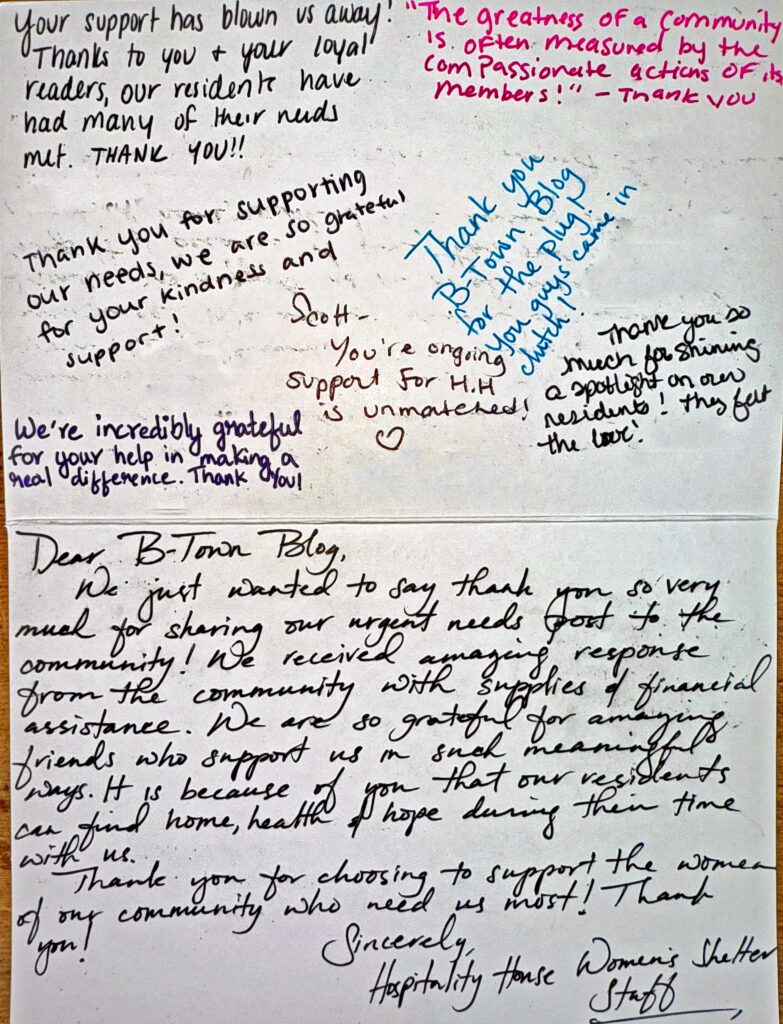 Your support has blown us away!
Thanks to you + your loyal
readers, our residents have
had many of their needs
met. THANK YOU!!
"The greatness of a community
is often measured by the
compassionate actions of its
members!" - Thank you
Thank you for supporting
our needs, we are so grateful
for your kindness and
support!
Thank you
B-Town Blog
for the plug!
You guys came in
clutch!
Scott-
You're ongoing
support for H.H
is unmatched!
♡
Thank you so
much for shining
a spotlight on our
residents! They felt
the love!
We're incredibly grateful
for your help in making a
real difference. Thank You!
Dear B-Town Blog,
We just wanted to say thank you so very
much for sharing our urgent needs post to the
community! We received amazing response
from the community with supplies & financial
assistance. We are so grateful for amazing
friends who support us in such meaningful
ways. It is because of you that our residents
can find home, health & hope during their time
with us.
Thank you for choosing to support the women
of our community who need us most! Thank
you!
Sincerely,
Hospitality House Women's Shelter
Staff